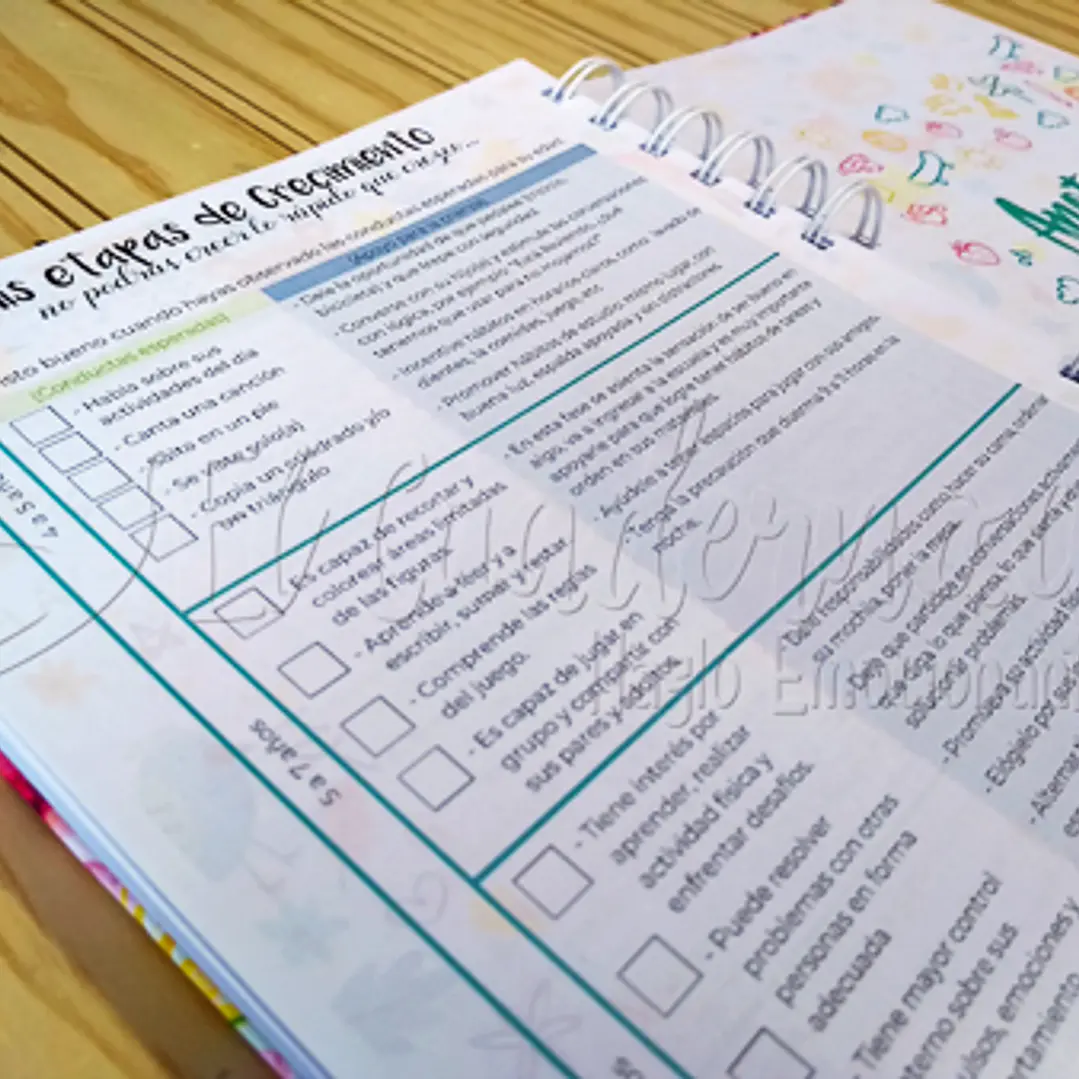 as etapas de Crecimiento
no podrás creerlo rápido que crece...
isto bueno cuando hayas observado las conductas esperadas para su edad.
(Conductas esperadas)
(Apoyo para
4 a 5 a
- Habla sobre sus
actividades del día
- Canta una canción
- Salta en un pie
- Se viste solo(a)
- Copia un cuadrado y/o
un triángulo
- Dele la oportunidad de que pedalee (triciclo,
bicicleta) y que trepe con seguridad.
- Converse con su hijo(a) y estimule las
con lógica, por ejemplo: "Está lloviendo, ¿qué
tenemos que usar para no mojarnos?"
- Incentive hábitos en horarios claros, como: lavado de
dientes, la comidas, juego, etc
- Promover hábitos de estudio: mismo lugar con
buena luz, espalda apoyada y sin distractores
5 a 7 años
- Es capaz de recortar y
colorear áreas limitadas
de las figuras.
- Aprende a leer y a
escribir, sumar y restar
- Comprende las reglas
del juego.
- Es capaz de jugar en
grupo y compartir con
sus pares y adultos.
- En esta fase se asienta la sensación de ser bueno en
algo, va a ingresar a la escuela y es muy importante
apoyarle para que logre tener hábitos de tareas y
orden en sus rutinas.
Ayúdele a tener espacios para jugar con sus amigos
- Tenga la precaución que duerma 8 a 9 horas en la
noche.
- Tiene interés por
aprender, realizar
actividad física y
enfrentar desafíos.
- Puede resolver
problemas con otras
personas en forma
adecuada
- Tiene mayor control
interno sobre sus
emociones y
- Dele responsabilidades como hacer su cama, ordenar
su mochila, poner la mesa.
Deje que participe en conversaciones
que diga lo que piensa, lo que sienta y
solucionar problemas
- Promueva su actividad física
- Elógielo por sus
- Alterne
Haglo Emocionari